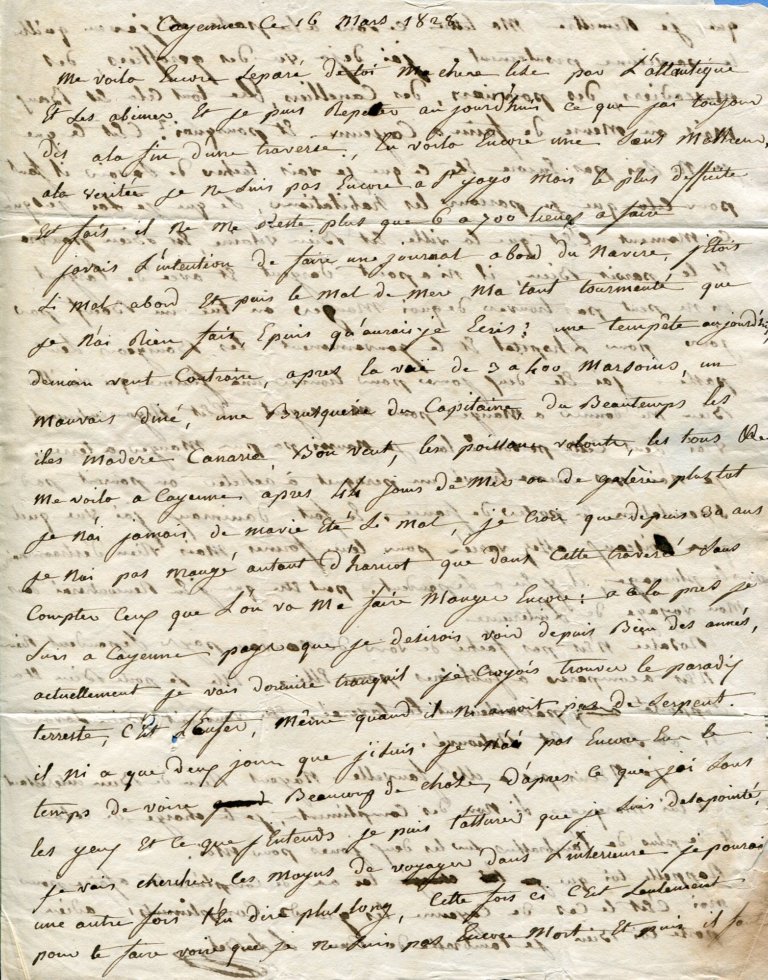 Cayenne Ce 16 Mars 1828
Me voila Encore separé de toi Ma chere lise par L'atlantique
Et Les abimes, Et je puis Repeter aujourd'huis ce que jai toujour
dis a la fin d'une traversé, En voila Encore une sans Malheur,
a la veritée je ne suis pas Encore a Mais le plus difficile
Est fais il ne me Reste plus que 6 a 700 lieues a faire
javais L'intention de faire une journal a bord du Navire, jEtois
si mal abord Et puis le Mal de Mere Ma tant tourmenté que
je N'ai Rien fais, Epuis qu'aurais je Ecris? une tempête aujourd'hui,
demain vent Contraire, apres la vuë de 3 a 400 Marsoins, un
Mauvais diné, une Brusquerie du Capitaine, du Beautemps les
iles Madere Canarie, Bon vent, les poissons volants, les tons
Me voila a Cayenne apres 44 jours de Mer ou de galere plustot
je N'ai jamais de ma vie Eté si Mal, je Crois que depuis 30 ans
je N'ai pas Mangé autant d'haricot que dans Cette traversé sans
Compter Ceux que L'on va Me faire Manger Encore: a cela pres je
suis a Cayenne pays que je desirois voir depuis Bien des années,
actuellement je vais dormire tranquil je Croyois trouver le paradis
terreste, C'Est L'Enfer, Même quand il Ni auroit pas de Serpent.
il Ni a que deux jours que j'i suis je N'ai pas Encore Eu le
temps de voire Beaucoup de chose, d'apres ce que jai sous
les yeux Et ce que j'Entends je puis t'assurer que je suis desapointé,
je vais chercher les Moyens de voyager dans L'interieure je pourai
une autre fois t'En dire plus long, Cette fois ci C'Est seulement
pour te faire voire que je ne suis pas Encore Mort. Et puis il